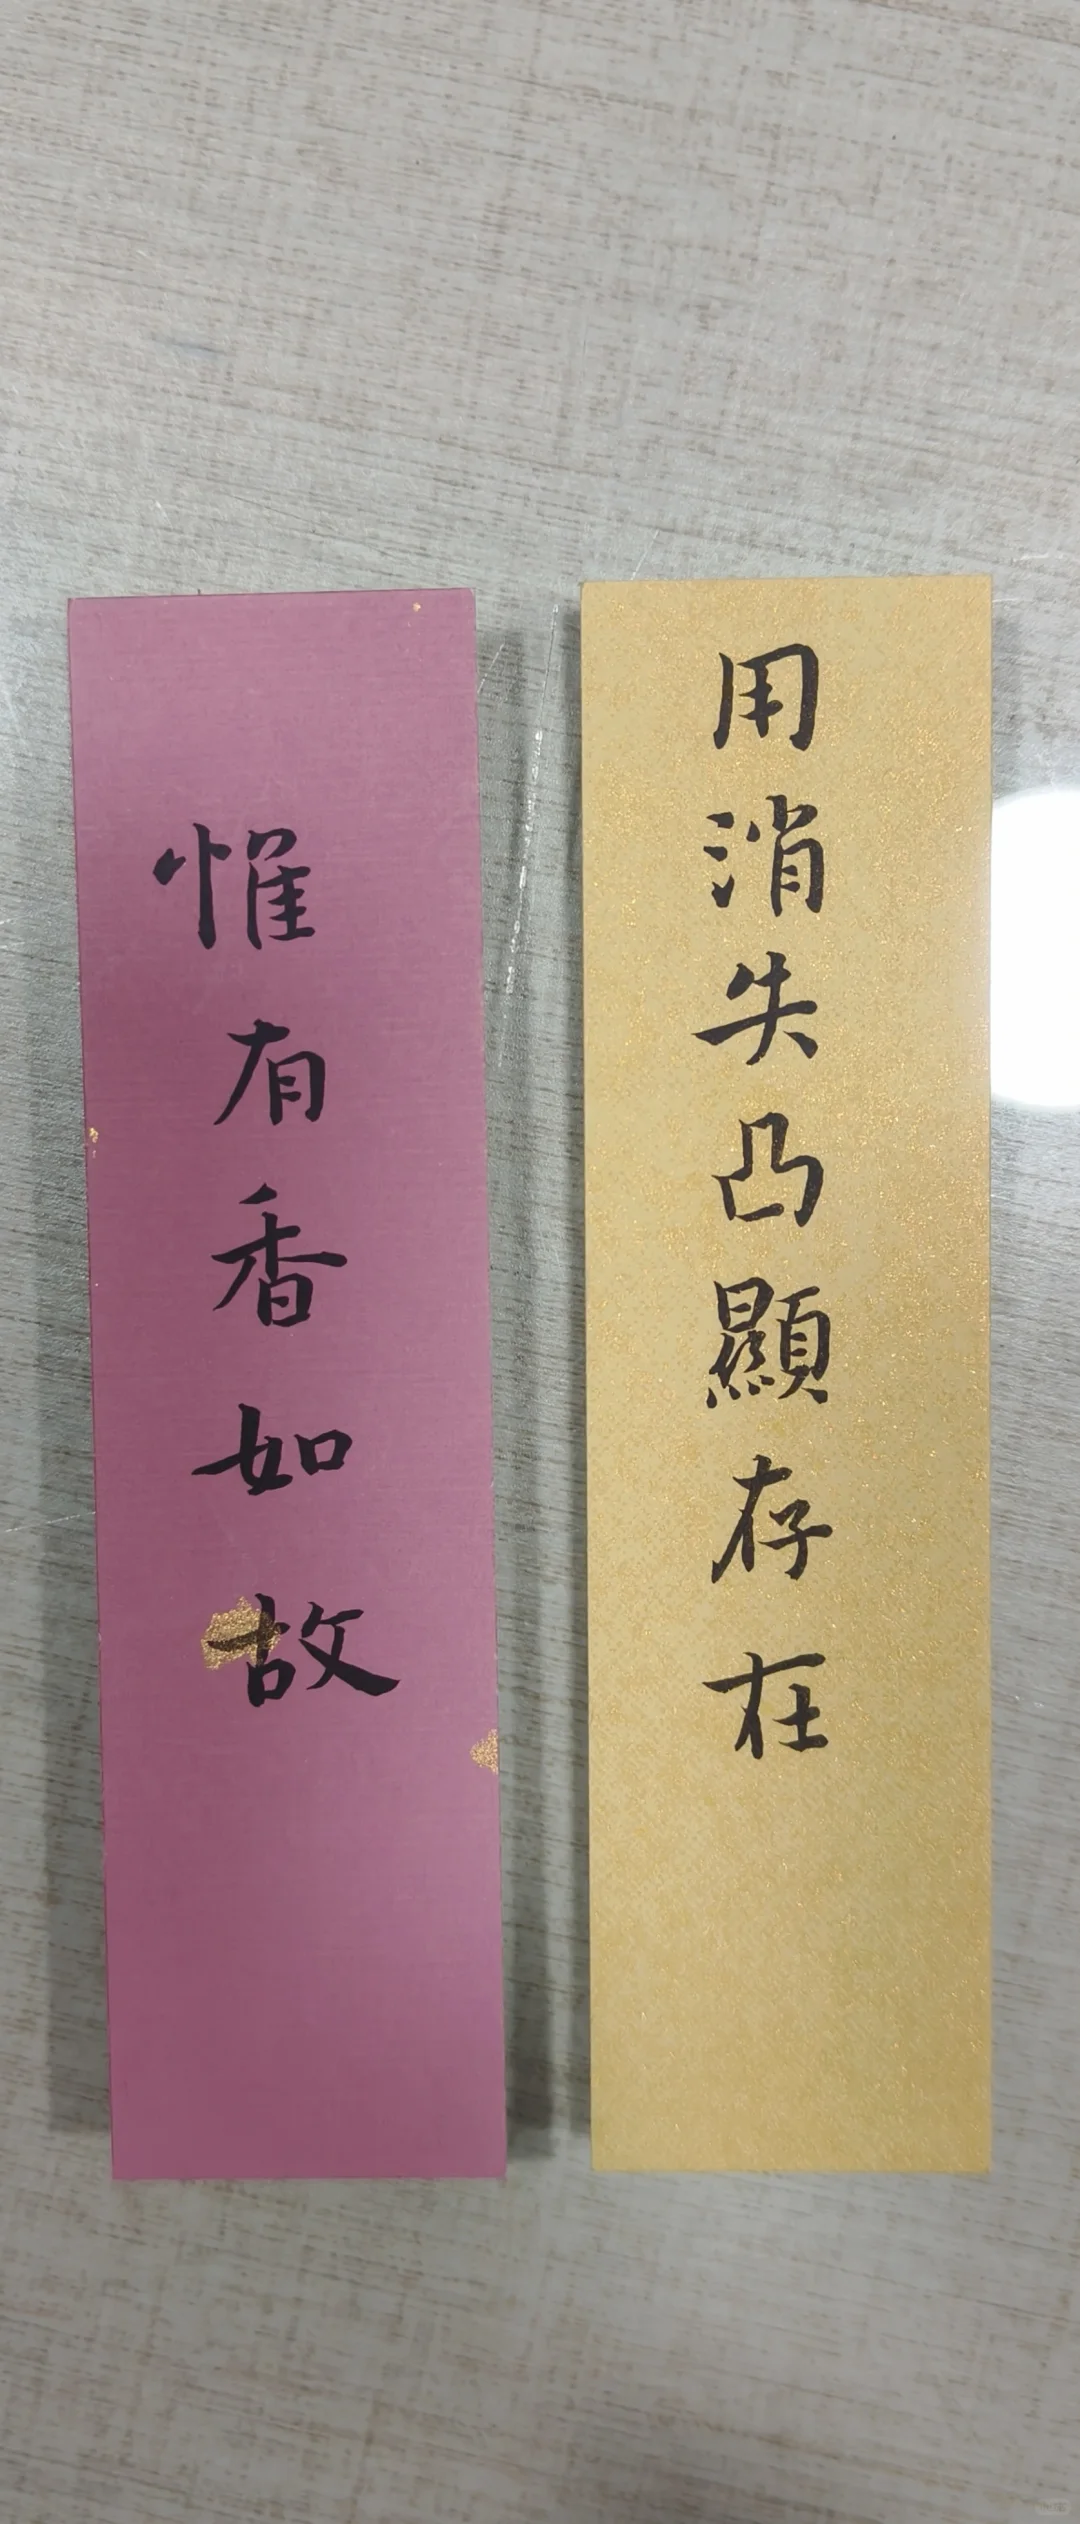 用消失凸顯存在
惟有香如故